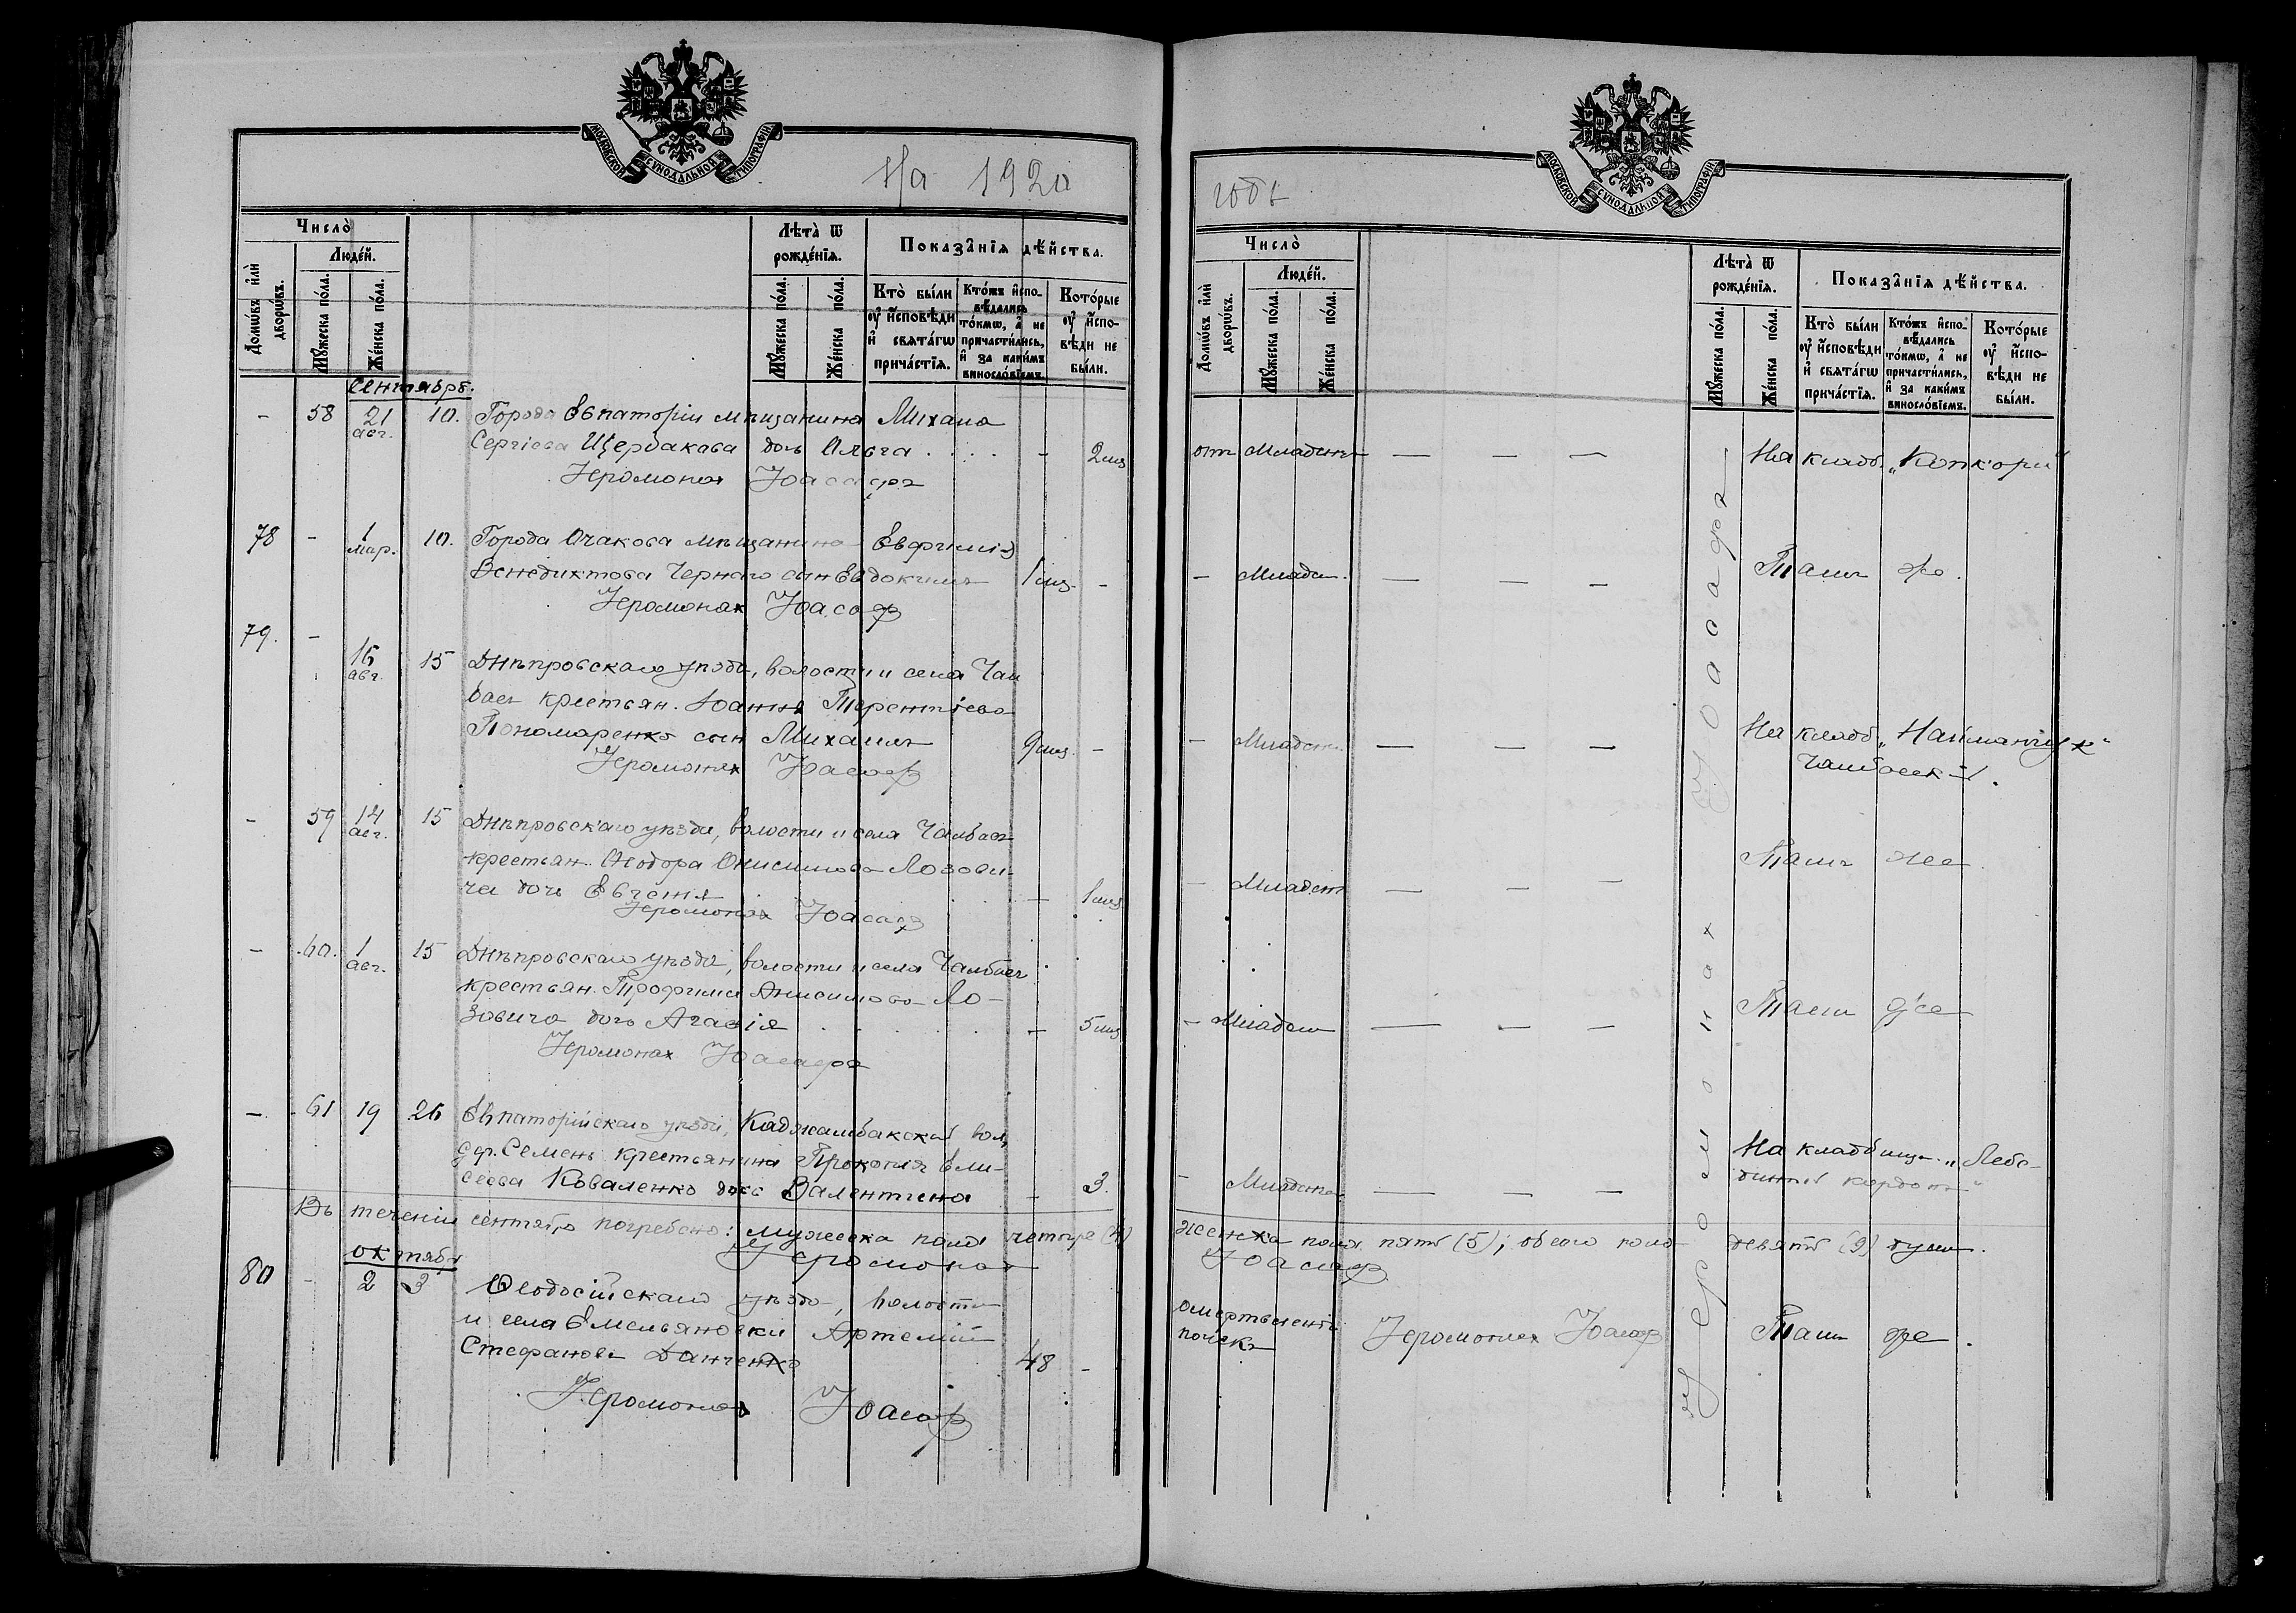 МОСКОВСКОЙ СѴНОДАЛЬНОЙ ТИПОГРАФІИ
На 1920
Число̀
Людéй.
Домѡ́въ и҆лѝ дворѡ́въ.
Мꙋ́жеска по́ла.
Же́нска по́ла.
Лѣта̀ ѿ рожде́нїѧ.
Мꙋ́жеска по́ла.
Же́нска по́ла.
Показа̑нїѧ дѣ́йства.
Кто̀ бы́ли ᲂу҆ и҆́сповѣди и҆ свѧта́гѡ прича́стїѧ.
Кто́жъ и҆спо- вѣ́дались то́кмѡ, а҆ не причасти́лись, и҆ за каки́мъ винослові́емъ.
Кото́рые ᲂу҆ и҆́спо- вѣди не бы́ли.
Сентябрь.
- 58 21 авг. 10. Города Евпаторіи мѣщанина Михаила
Сергіева Щербакова дочь Ольга . . . . - 2 мѣс
Іеромонах Іоасафъ
78 - 1 мар. 10. Города Очакова мѣщанина Евфимія
Венедиктова Чернаго сын Евдокимъ 1 мѣс. -
Іеромонах Іоасаф
79. -
16 авг. 15 Днѣпровскаго уѣзда, волости и села Чал
басъ крестьян. Іоанна Терентіева
Пономаренко сын Михаилъ 9 мѣс. -
Іеромонах Іоасаф
- 59 14 авг. 15 Днѣпровскаго уѣзда, волости и села Чалбасъ
крестьян. Ѳеодора Онисимова Лозови-
ча дочь Евгенія - 1 мѣс.
Іеромонах Іоасаф
- 60. 1 авг. 15 Днѣпровскаго уѣзда, волости и села Чалбасъ
крестьян. Трофима Анисимова Ло-
зовича дочь Агафія . . . . - 5 мѣс
Іеромонах Іоасафъ
- 61 19 26 Евпаторійскаго уѣзда, Каджамбакской вол.
дер. Семень крестьянина Прокопія Ели-
сеева Коваленко дочь Валентина - 3.
Въ теченіи сентября погребено: мужеска пола четыре (4)
Іеромонах
октябр
80 - 2 3 Ѳеодосійскаго уѣзда, волости
и села Емельяновки Артемій
Стефановъ Данченко 48 -
Іеромонах Іоасаф
МОСКОВСКОЙ СѴНОДАЛЬНОЙ ТИПОГРАФІИ
годъ
Число̀
Людéй.
Домѡ́въ и҆лѝ дворѡ́въ.
Мꙋ́жеска по́ла.
Же́нска по́ла.
Лѣта̀ ѿ рожде́нїѧ.
Мꙋ́жеска по́ла.
Же́нска по́ла.
Показа̑нїѧ дѣ́йства.
Кто̀ бы́ли ᲂу҆ и҆́сповѣди и҆ свѧта́гѡ прича́стїѧ.
Кто́жъ и҆спо- вѣ́дались то́кмѡ, а҆ не причасти́лись, и҆ за каки́мъ винослові́емъ.
Кото́рые ᲂу҆ и҆́спо- вѣди не бы́ли.
отъ Младенч — — — На кладб. „Копкори"
- Младен. — — — Тамъ же.
- Младенч. — — — На кладб. „Найманчук"
Чалбаск.
- Младенч — — — Тамъ же.
- Младен — — — Тамъ же
- Младенч — — — На кладбищѣ „Лебе-
диный кордонъ"
женска пола пять (5); обоего пола девять (9) душ.
Іоасаф
омертвленія
почекъ Іеромонах Іоасаф Тамъ же.
Іеромонах Іоасафъ